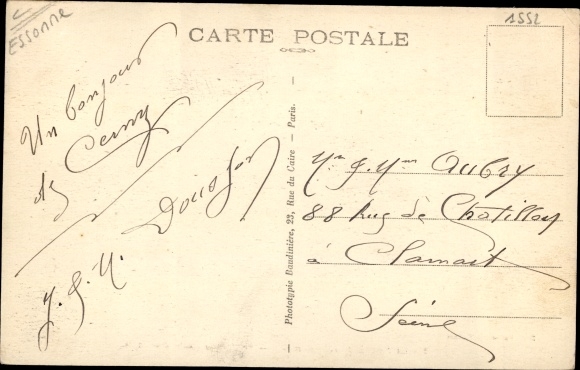 Essonne
1552
CARTE POSTALE
Un bonjour
de Cerny
Phototypie Baudinière, 23, Rue du Caire — Paris.
Mr & Mme Aubry
88 Rue de Chatillon
à Clamart
Seine